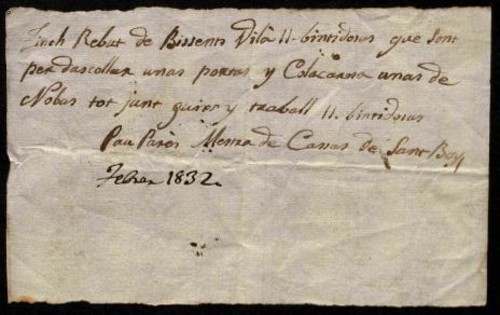 Tinch Rebut de Bissents Vilà 11-bintidous que sont
per dascollar unas portas y Colacarna unas de
Nobas tot junt guixs y traball 11. bintidous
Pau Parés Mestra de Casas de Sant Boy
Febrer 1832.